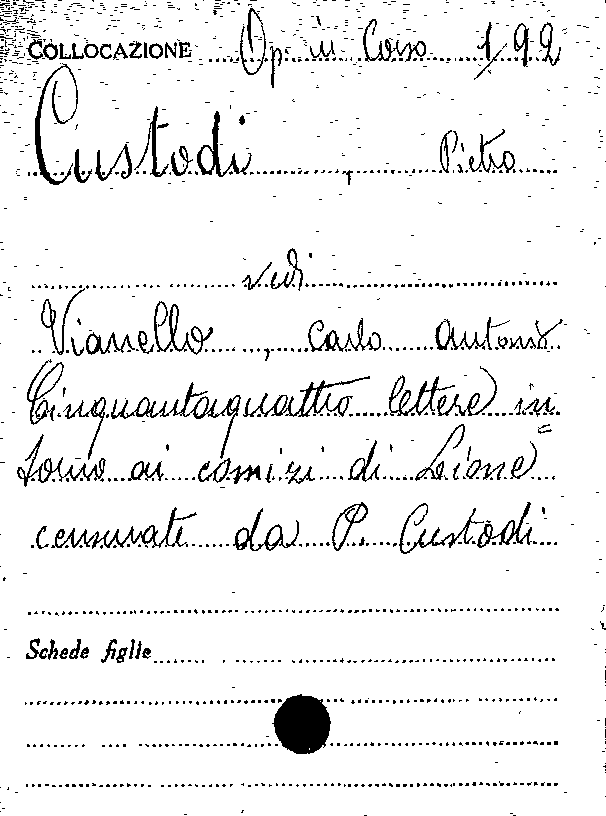 COLLOCAZIONE Op. in Corso 1/92
Custodi, Pietro
vedi
Vianello, Carlo Antonio
Cinquantaquattro lettere in=
torno ai comizi di Lione
censurate da P. Custodi
Schede figlie